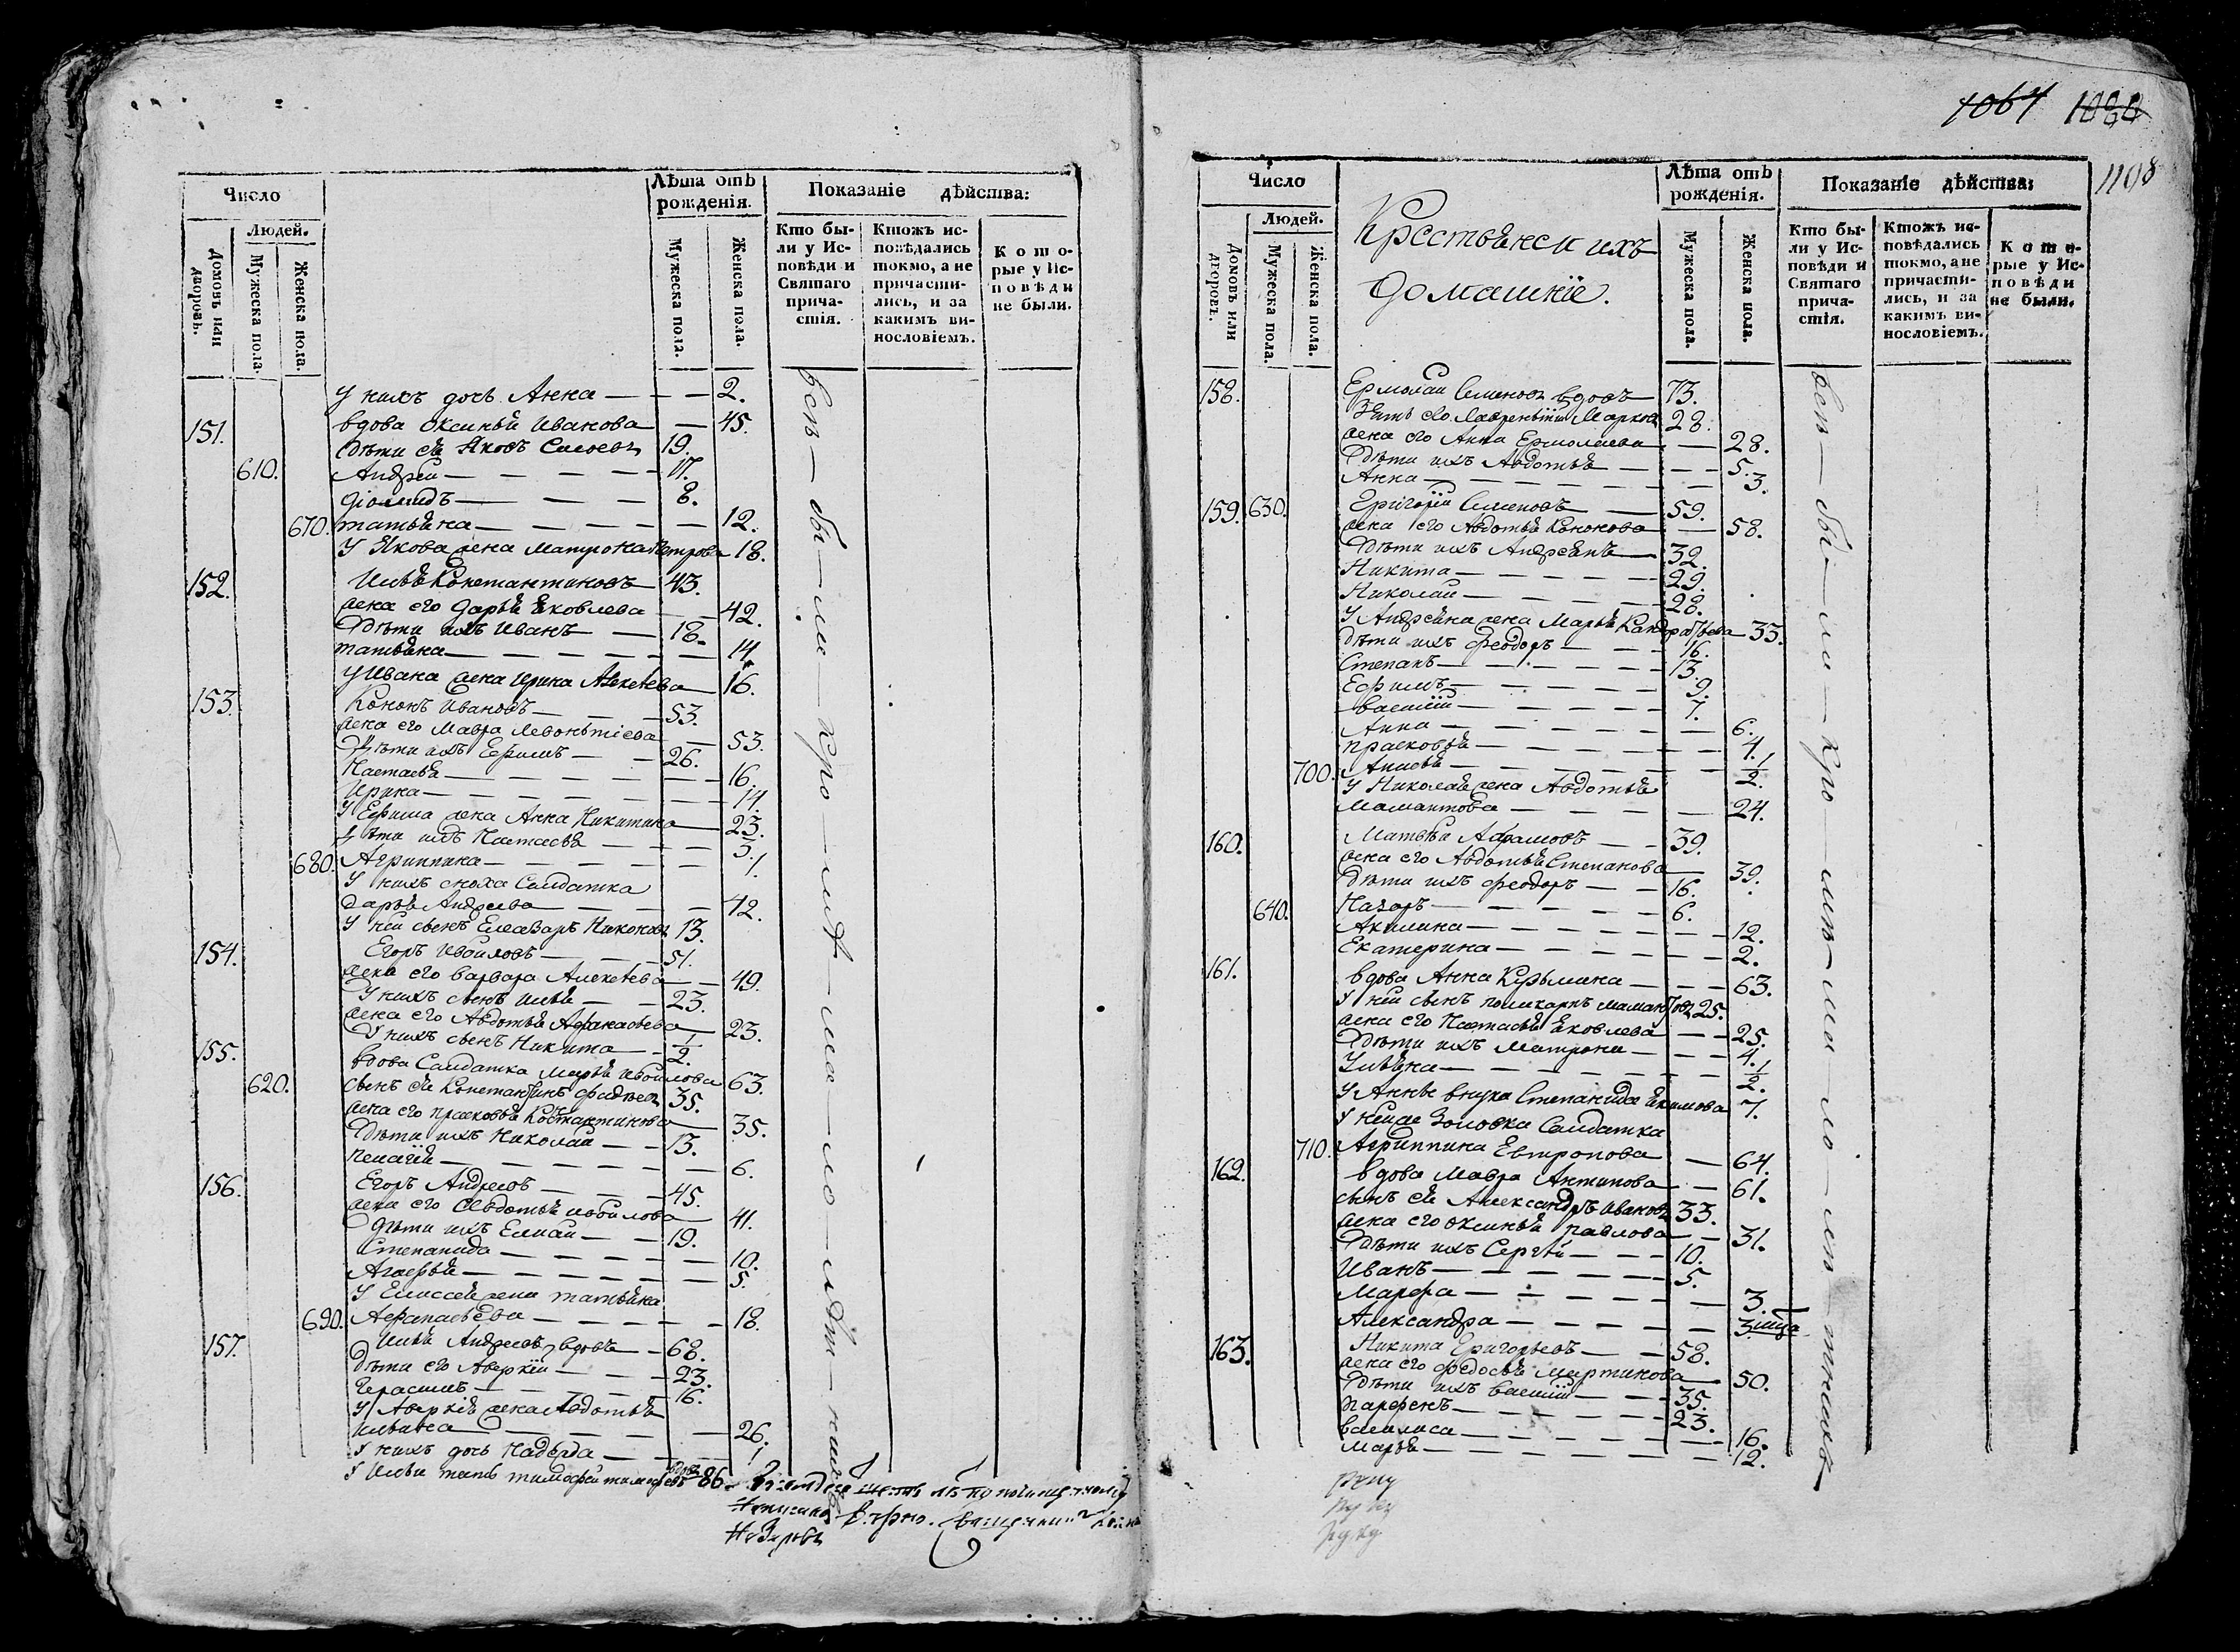 Число
Людей.
Домовъ или дворовъ.
Мужеска пола.
Женска пола.
Лѣта отъ рожденія.
Мужеска пола.
Женска пола.
Показаніе дѣйства:
Кто бы-
ли у Ис-
повѣди и
Святаго
прича-
стія.
Ктожъ ис-
повѣдались
токмо, а не
причасти-
лись, и за
какимъ ви-
нословіемъ.
Кото-
рые у Ис-
повѣди
не были.
У нихъ дочь Анна — — — 2.
151. вдова Оксинья Иванова — 45.
Дѣти ея Яковъ 19.
610. Андрей — — — — 17.
Діомидъ — — — 8.
670. татьяна — — — — — 12.
У Якова жена Матрона Петрова 18.
152. Илья Константиновъ — 43.
жена его Дарья Яковлева — — 42.
Дѣти ихъ Иванъ — 18.
татьяна — — — — — 14.
У Ивана жена Ирина Алексѣева — 16.
153. Кононъ Ивановъ — — — 53.
жена его Мавра Левоньтіева — 53.
Дѣти ихъ Ефимъ — — 26.
Настасья — — — — — 16.
Ирина — — — — — 14.
У Ефима жена Анна Никитина — 23.
Дѣти ихъ Настасья — — — 3.
680. Агриппина — — — — 1.
У нихъ сноха Салдатка
Дарья Андреева — — — — 42.
У ней сынъ Елеазаръ Никоновъ 13.
154. Егоръ Ивойловъ — — — 51.
жена его варвара Алексѣева — — 49.
У нихъ сынъ Илья — — 23.
жена его Авдотья Афанасьева — 23.
У нихъ сынъ Никита — 1/2.
155. вдова Салдатка Марья Ивойлова 63.
620. сынъ ея Константинъ 35.
жена его прасковья Костантинова — 35.
Дѣти ихъ Николай — — 13.
Пелагия — — — — — 6.
156. Егоръ Андреевъ — — — 45.
жена его Авдотья Ивойлова — 41.
Дѣти ихъ Елисей — — 19.
Степанида — — — — — 10.
Агафья — — — — — — 5.
У Елиссея жена татьяна
690. Афанасьева — — — — — 18.
157. Илья Андреевъ вдовъ — 68.
Дѣти его Аверкій — — — 23.
Герасимъ — — — — 16.
У Аверкія жена Авдотья
Ильина — — — — 26.
У нихъ дочь Надежда — — — 1.
У Ильи тимофей 86.
всѣ — бы — ли
1064 1080
1198
Число
Людей.
Домовъ или дворовъ.
Мужеска пола.
Женска пола.
Крестьяне и ихъ
Домашніе.
Лѣта отъ рожденія.
Мужеска пола.
Женска пола.
Показаніе дѣйства:
Кто бы-
ли у Ис-
повѣди и
Святаго
прича-
стія.
Ктожъ ис-
повѣдались
токмо, а не
причасти-
лись, и за
какимъ ви-
нословіемъ.
Кото-
рые у Ис-
повѣди
не были.
158. Ермолай Семеновъ вдовъ — 73.
Зять его Лаврентій Марковъ 28.
жена его Анна Ермолаева — 28.
Дѣти ихъ Авдотья — — — 5.
Анна — — — — — — 3.
159. 630. Григорій Семеновъ — 59.
жена его Авдотья Кононова — 58.
Дѣти ихъ Андреянъ — 32.
Никита — — — — — 29.
Николай — — — — — 28.
У Андреяна жена Марья Кандратьева — 33.
Дѣти ихъ Феодоръ — — — 16.
Степанъ — — — — — 13.
Ефимъ — — — — — 9.
василій — — — — — 7.
Анна — — — — — 6.
прасковья — — — — — 4.
700. Анисья — — — — — 1/2.
У Николая жена Авдотья
Мамантова — — — — 24.
160. Матвѣй Абрамовъ — — 39.
жена его Авдотья Степанова — 39.
Дѣти ихъ Феодоръ — — 16.
640. Назаръ — — — — — 6.
Акилина — — — — — 12.
Екатерина — — — — — 2.
161. вдова Анна Кузьмина — — — 63.
У ней сынъ поликарпъ мамантовъ 25.
жена его Настасья Яковлева — — 25.
Дѣти ихъ Матрона — — — 4.
Ульяна — — — — — 1/2.
У Анны внука Степанида Якимова 7.
У нейже Золовка Салдатка
710. Агриппина Евтропова — 64.
162. вдова Мавра Антипова — — 61.
сынъ ея Александръ Ивановъ 33.
жена его Оксинья павлова — — 31.
Дѣти ихъ Сергѣй — — — 10.
Иванъ — — — — — 5.
Марфа — — — — — — 3.
Александра — — — — — 3 мца
163. Никита Григорьевъ — — 58.
жена его Федосья Мартинова — 50.
Дѣти ихъ василій — — — 35.
парфенъ — — — — — 23.
василиса — — — — — — 16.
Марья — — — — — — 12.
всѣ — бы — ли